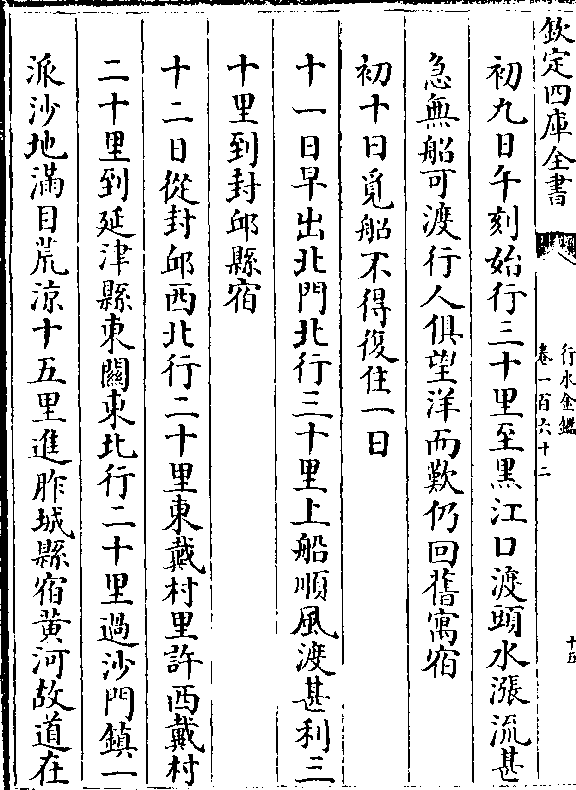 欽定四庫全書
行水金鑑
卷一百六十二
十五
初九日午刻始行三十里至黑江口渡頭水漲流甚
急無船可渡行人俱望洋而歎仍回舊寓宿
初十日覓船不得復住一日
十一日早出北門北行三十里上船順風渡甚利三
十里到封邱縣宿
十二日從封邱西北行二十里東戴村里許西戴村
二十里到延津縣東關東北行二十里過沙門鎮一
派沙地滿目荒涼十五里進胙城縣宿黃河故道在